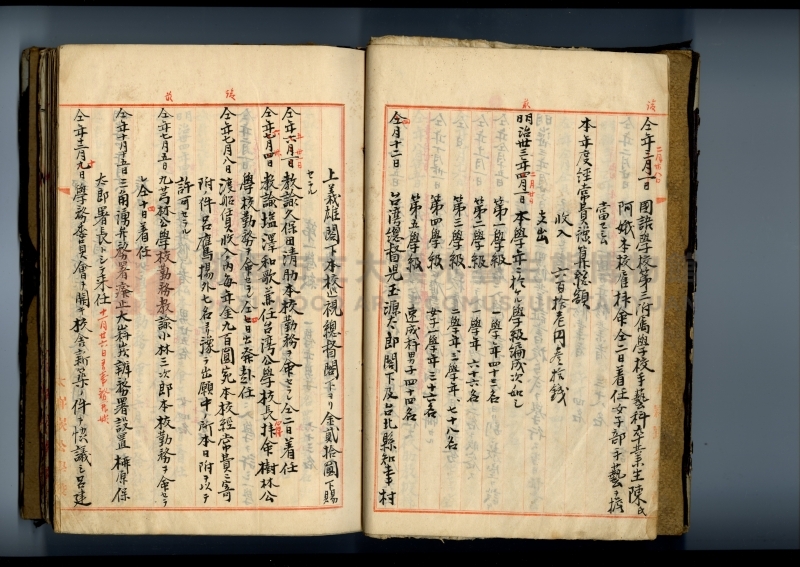 仝年三月一日 國語學校第三附属學校手藝科卒業生陳氏
阿娥本校雇拝命仝二日着任女子部手藝ヲ擔
當セシム
本年度經常費豫算整額
收入 六百拾壱円壱拾銭
支出
明治卅三年四月一日本學年ニ於ル學級編成次如シ
第一學級 一學年四十三名
第二學級 一學年六十六名
第三學級 二學年、三學年、七十八名
第四學級 女子一學年三十六名
第五學級 速成科男子四十四名
仝月十二日 台湾總督児玉源太郎閣下及台北縣知事村
上義雄閣下本校巡視總督閣下ヨリ金貳拾圓下賜
セラル
仝年六月一日教諭久保田清助本校勤務ヲ命セラレ仝二日着任
仝年七月四日教諭塩澤和歌兼任台湾公學校長拝命樹林公
學校勤務ヲ命セラレ仝七日出発赴任
仝年七月八日渡船賃收入ノ内毎年金九百圓宛本校經常費ニ寄
附件呂鷹揚外七名ヨリ豫テ出願中ノ所本日附ヲ以テ
許可セラル
仝年七月五日九芎林公學校勤務教諭小林三次郎本校勤務ヲ命セラ
レ仝十日着任
仝年十月十五日三角湧弁務署廃止大嵙崁辨務署設置 橋原保
太郎署長トシテ来任
仝年十二月九日學務委員會ヲ開キ校舎新築ノ件ヲ協議シ呂建